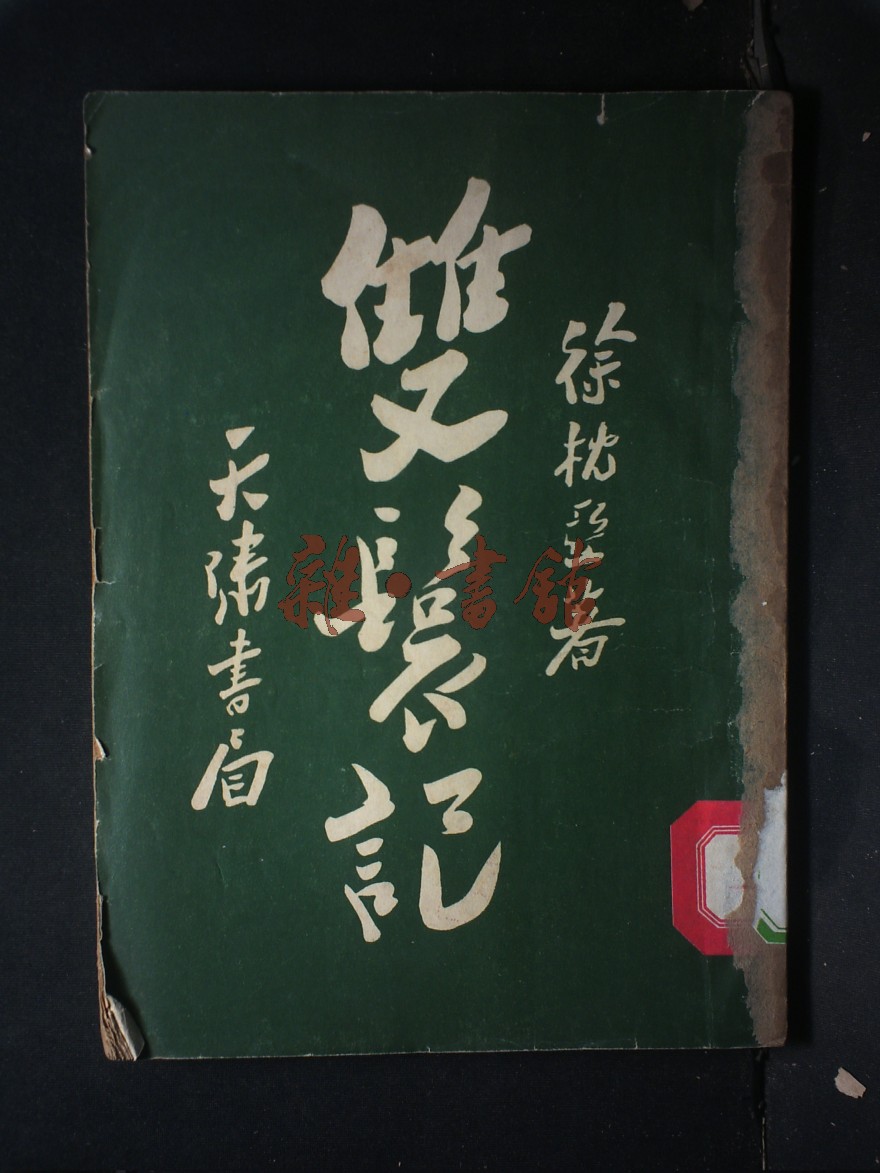 徐枕亞著
雙鬟記
天嘯書局
雜·書館